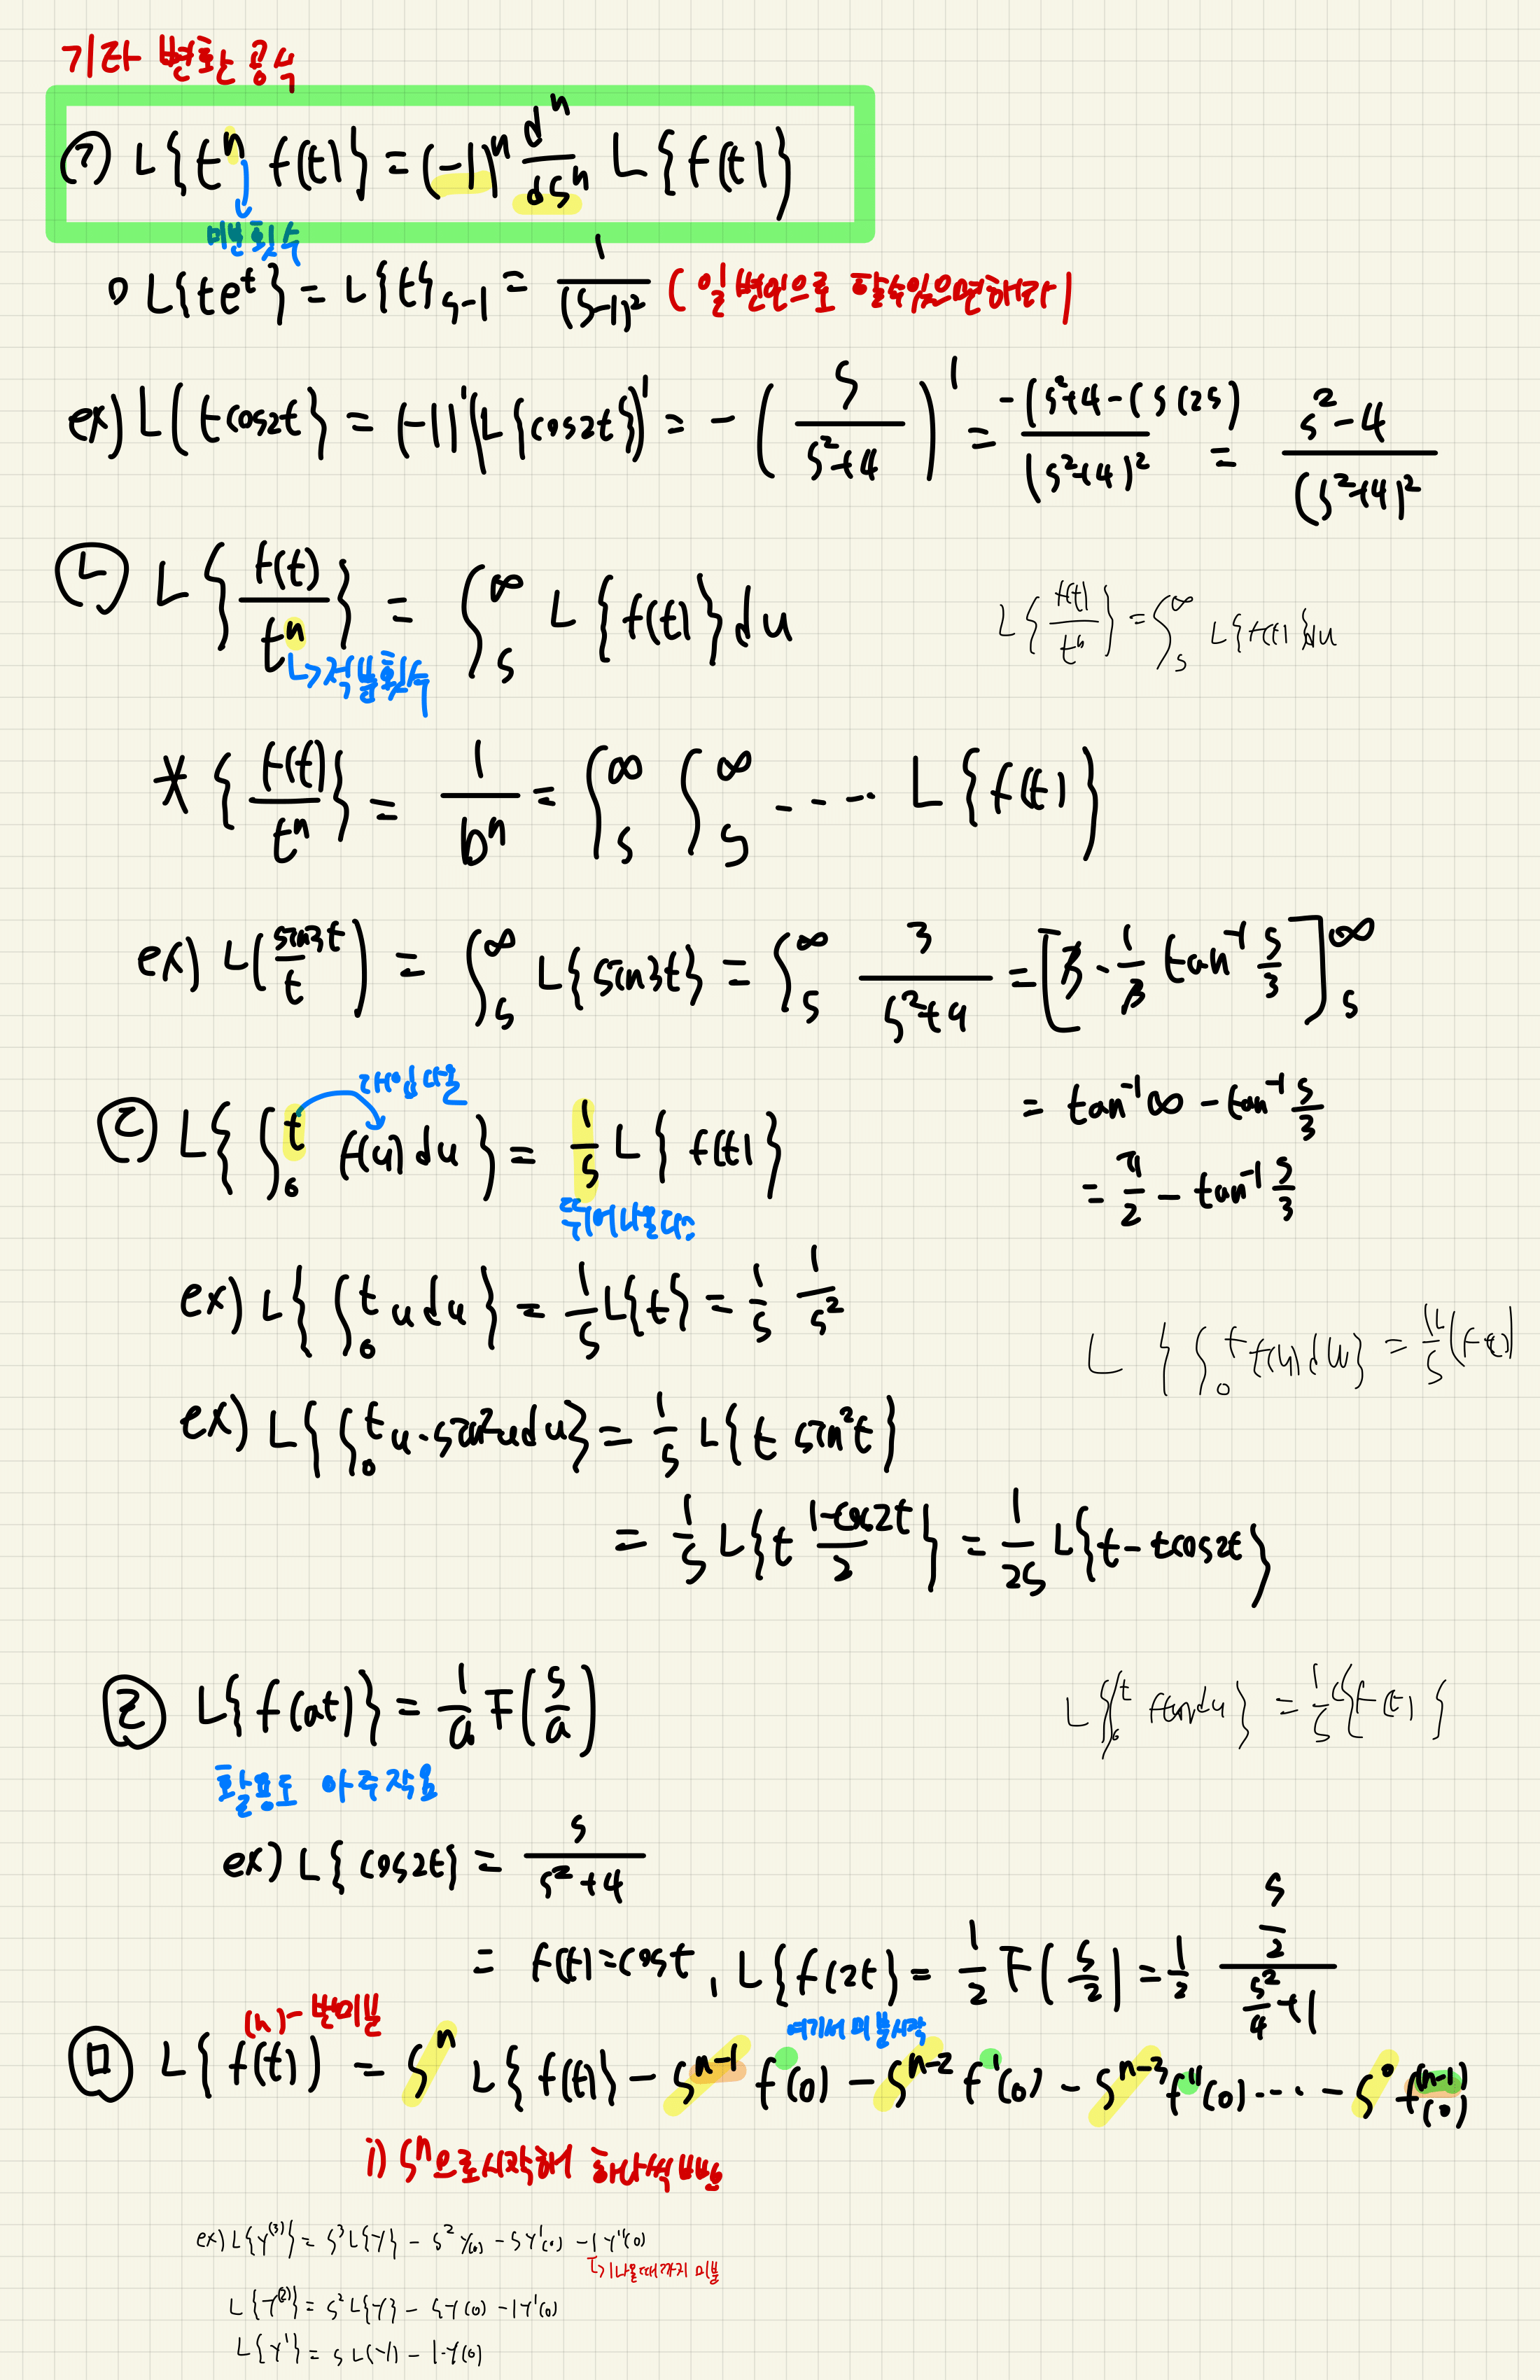 기타 변환 공식
㉠ L{tⁿ f(t)} = (-1)ⁿ dⁿ/dsⁿ L{f(t)}
미분횟수
○ L{te^t} = L{t}_{s-1} = 1/(s-1)² (일반인으로 할수있으면해라)
ex) L(tcos2t} = (-1)¹(L{cos2t})' = -(s/(s²+4))' = -(s²+4-(s(2s)/(s²+4)² = s²-4/(s²+4)²
㉡ L{f(t)/tⁿ} = ∫_s^∞ L{f(t)}du
L{f(t)/tⁿ} = ∫_s^∞ L{f(t)}du
↳적분횟수
* {f(t)/tⁿ} = 1/Dⁿ = ∫_s^∞ ∫_s^∞ ---- L{f(t)}
ex) L(sin3t/t) = ∫_s^∞ L{sin3t} = ∫_s^∞ 3/(s²+9) = [3·1/3 tan⁻¹ s/3]_s^∞
= tan⁻¹∞ - tan⁻¹ s/3
= π/2 - tan⁻¹ s/3
대입나올
㉢ L{∫_0^t f(u)du} = 1/s L{f(t)}
튀어나온다
ex) L{∫_0^t u du} = 1/s L{t} = 1/s 1/s²
L{∫_0^t f(u)du} = 1/s L(f(t))
ex) L{∫_0^t u·sin²u du} = 1/s L{t sin²t}
= 1/s L{t (1-cos2t)/2} = 1/2s L{t-tcos2t}
㉣ L{f(at)} = 1/a F(s/a)
L{∫_0^t f(u)du} = 1/s L{f(t)}
활용도 아주작음
ex) L{cos2t} = s/(s²+4)
= f(t)=cost, L{f(2t} = 1/2 F(s/2) = 1/2 (s/2)/(s²/4+1)
(n)-번미분
여기서 미분시작
㉤ L{f(t)) = sⁿ L{f(t)} - s^{n-1} f(0) - s^{n-2} f'(0) - s^{n-3} f''(0) ---- - s⁰ f^{(n-1)}(0)
i) sⁿ으로시작해 하나씩 빠짐
ex) L{y^{(3)}} = s³L{y} - s²y(0) - sy'(0) - 1y''(0)
1나올때까지 미분
L{y^{(2)}} = s²L{y} - sy(0) - 1y'(0)
L{y'} = sL(y) - 1·y(0)